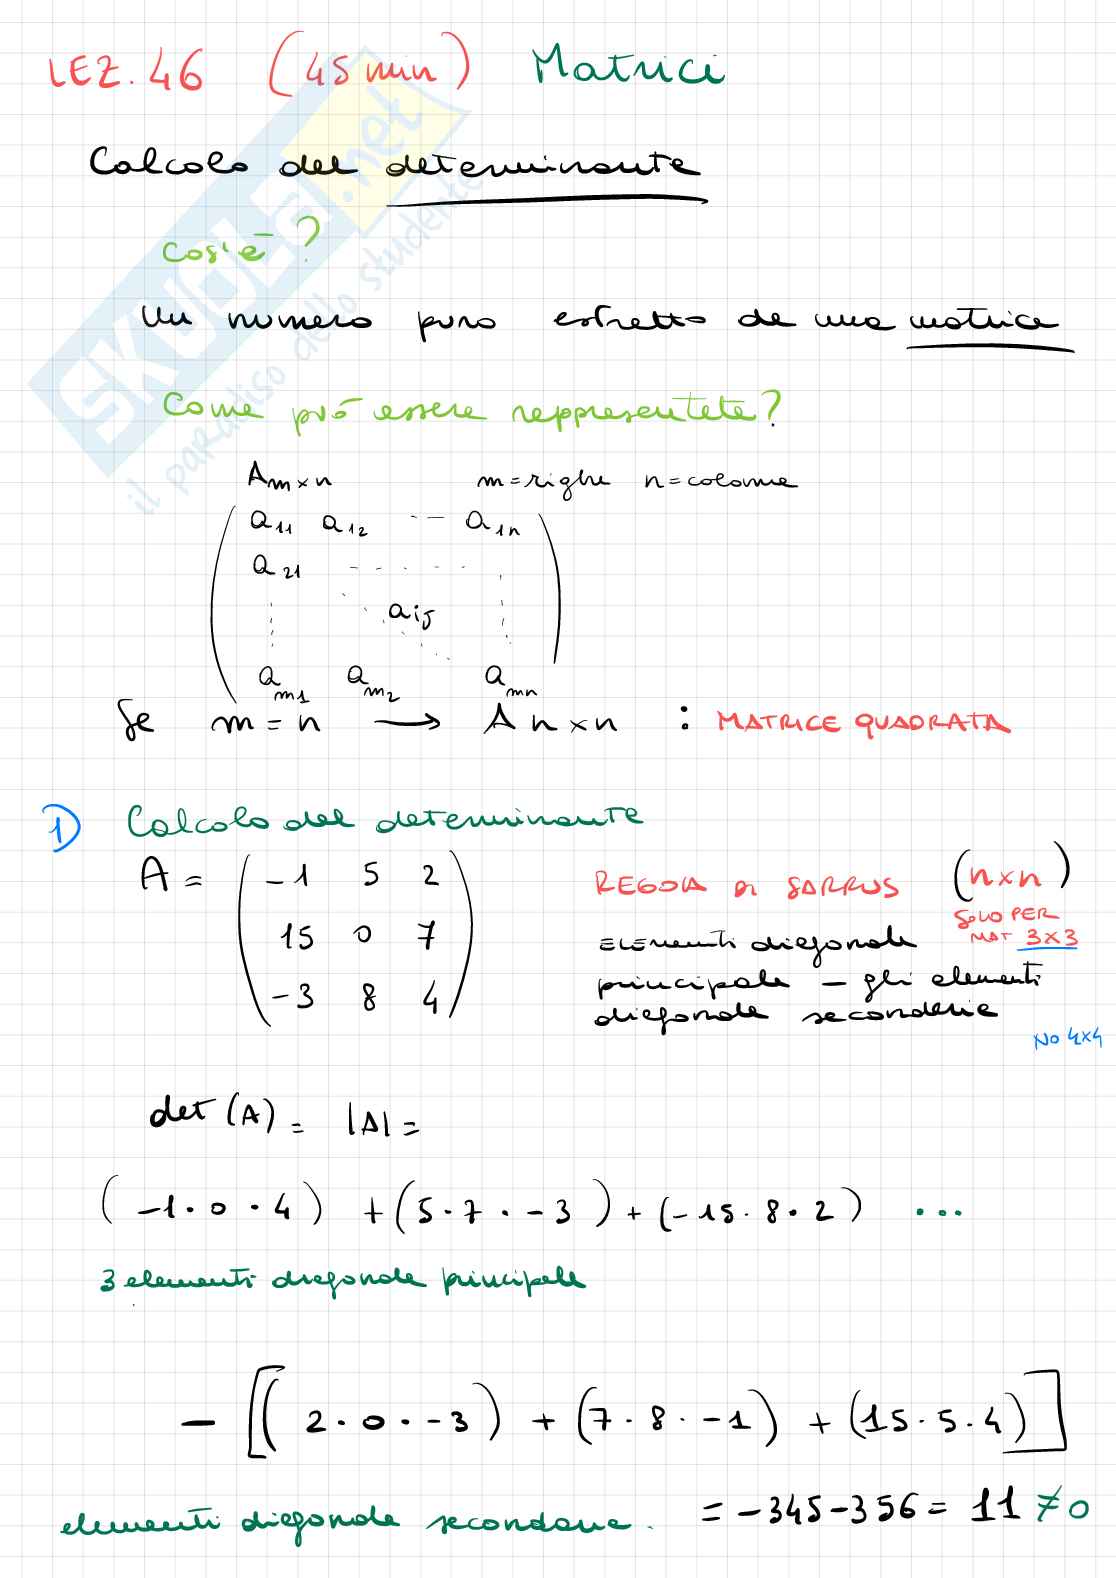 LEZ. 46 (45 min) Matrici
Calcolo del determinante
Cos'è?
Un numero puro estratto da una matrice
Come può essere rappresentata?
A m×n m=righe n=colonne
a11 a12 -- a1n
a21
aij
am1 am2 amn
Se m=n → A n×n : MATRICE QUADRATA
1) Calcolo del determinante
A = ( -1 5 2
15 0 7
-3 8 4 )
REGOLA DI SARRUS (n×n)
SOLO PER
MAT 3×3
ELEMENTI diagonale
principale - gli elementi
diagonale secondaria
NO 4×4
det (A) = |A| =
(-1·0·4) + (5·7·-3) + (-15·8·2) ...
3 elementi diagonale principale
- [(2·0·-3) + (7·8·-1) + (15·5·4)]
= -345-356 = 11 ≠0
elementi diagonale secondaria.
SKUOLA.net
il paradiso dello studente